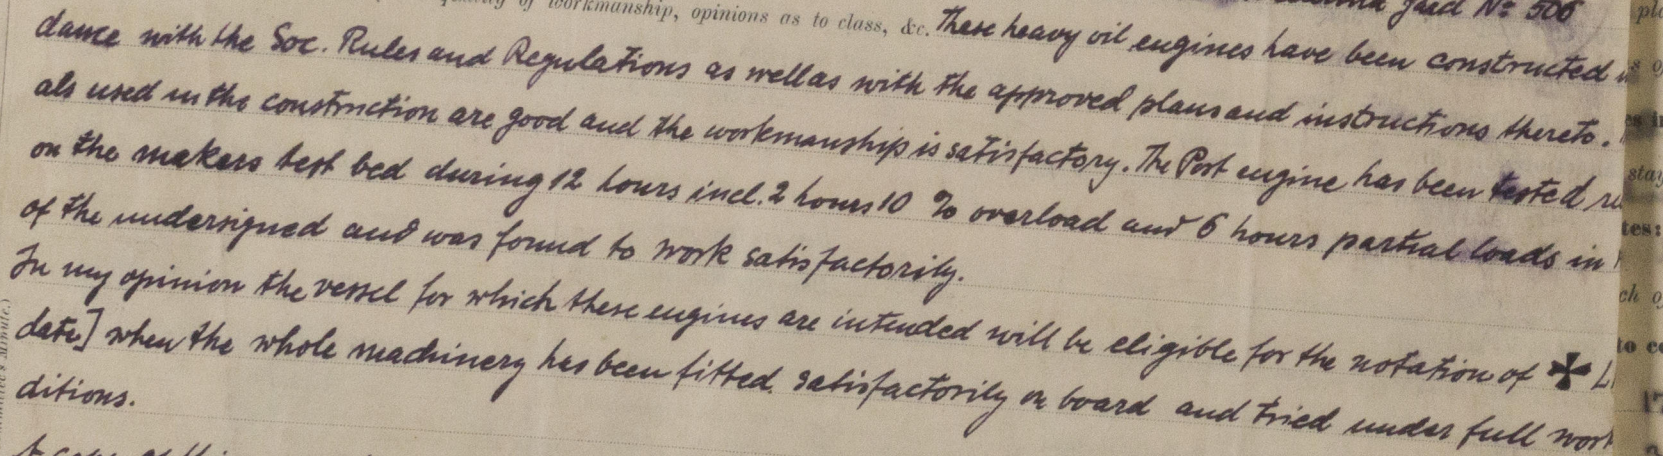 yard Nº 506
quality of workmanship, opinions as to class, &c. These heavy oil engines have been constructed
dance with the Soc. Rules and Regulations as well as with the approved plans and instructions thereto.
als used in the construction are good and the workmanship is satisfactory. The Port engine has been tested
on the makers test bed during 12 hours incl. 2 hours 10 % overload and 6 hours partial loads in
of the undersigned and was found to work satisfactorily.
In my opinion the vessel for which these engines are intended will be eligible for the notation of ✠ L
date] when the whole machinery has been fitted satisfactorily on board and tried under full work
ditions.